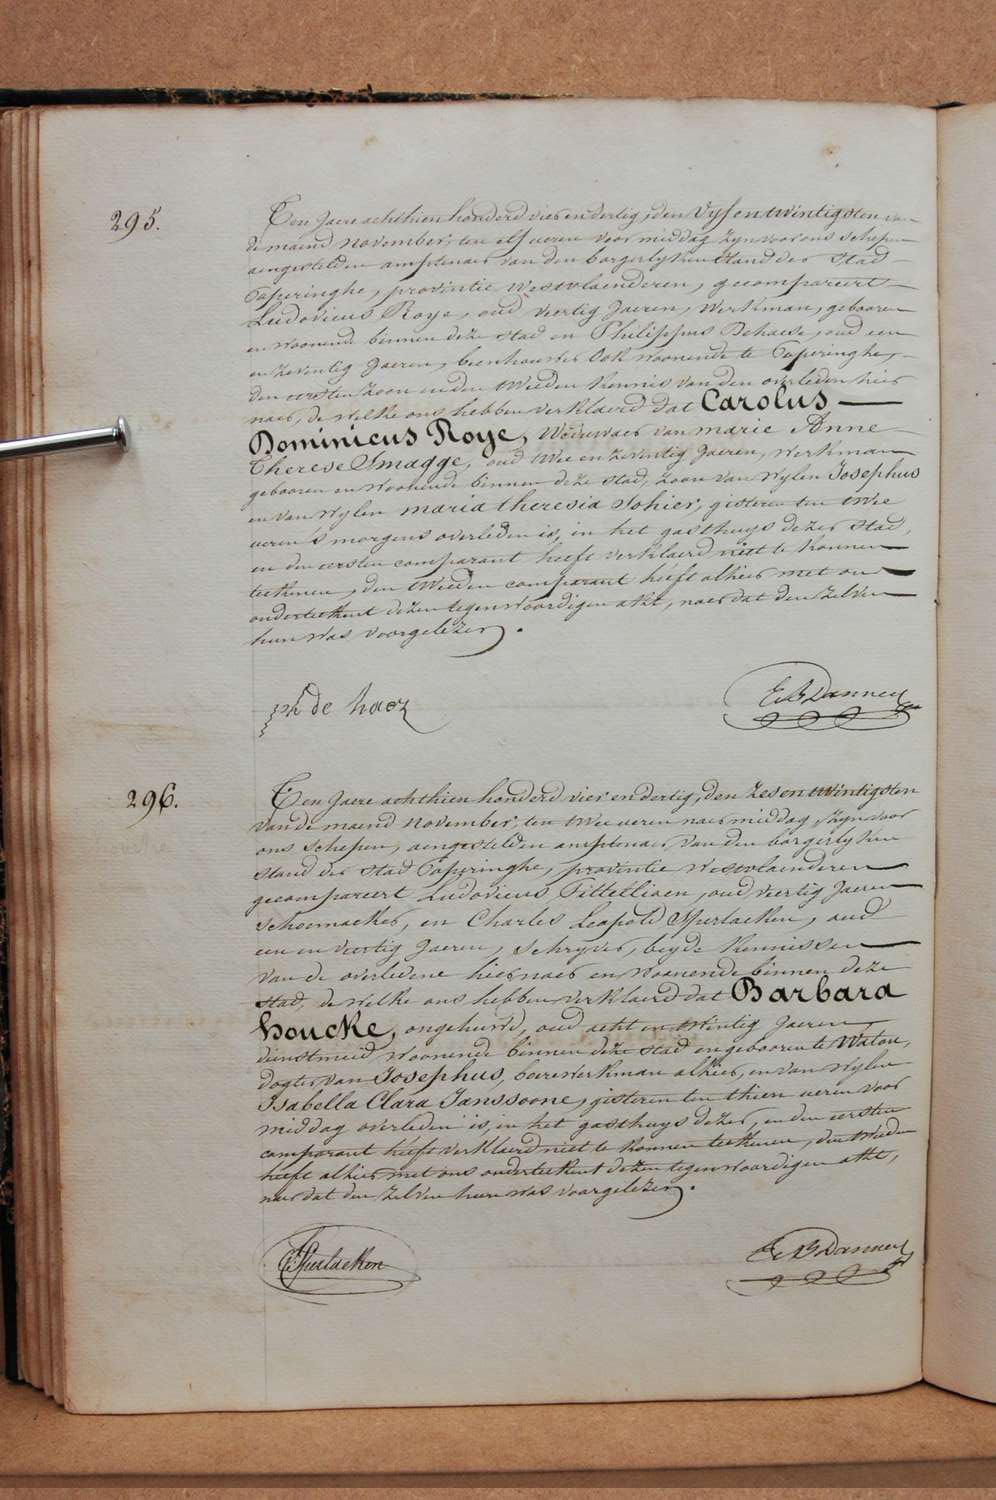 295.
Ten Jaere achthien honderd vier en dertig, den vyf en twintigsten van
de maend november, ten elf ueren voor middag zyn voor ons schepen
aengestelden amptenaer van den borgerlyken stand der stad
Poperinghe, provintie Westvlaenderen, gecompareert
Ludovicus Roye, oud veertig Jaeren, Werkman, gebooren
en woonende binnen deze stad en Philippus Dehaese, oud een
en zeventig Jaeren, beenhouwer ook woonende te Poperinghe,
den eersten zoon en den tweeden kennis van den overleden hier
naer, de welke ons hebben verklaerd dat Carolus
Dominicus Roye, Weduwaer van marie Anne
Therese Smagge, oud twee en zeventig Jaeren, werkman
gebooren en woonende binnen deze stad, zoon van wylen Josephus
en van wylen maria theresia Sohier, gisteren ten twee
ueren s morgens overleden is, in het gasthuys dezer stad,
en den eersten comparant heeft verklaerd niet te konnen
teekenen, den tweeden comparant heeft alhier met ons
onderteekent dezen tegenwoordigen akt, naer dat den zelven
hun was voorgelezen.
ph de haez
E B Danney
296.
Ten Jaere achthien honderd vier en dertig, den zes en twintigsten
van de maend november, ten twee ueren naer middag zyn voor
ons schepen, aengestelden amptenaer van den borgerlyken
stand der stad Poperinghe, provintie Westvlaenderen
gecompareert Ludovicus Tittelliaen, oud veertig Jaeren
schoemaeker, en Charles Leopold Spertaeken, oud
een en veertig Jaeren, schryver, beyde kennissen
van de overledene hier naer en woonende binnen deze
stad, de welke ons hebben verklaerd dat Barbara
houcke, ongehuwd, oud acht en twintig Jaeren,
dienstmeid woonende binnen deze stad en gebooren te Watou,
dogter van Josephus, boerewerkman alhier, en van wylen
Isabella Clara Janssoone, gisteren ten thien ueren voor
middag overleden is, in het gasthuys dezer, en den eersten
comparant heeft verklaerd niet te konnen teekenen, den tweeden
heeft alhier met ons onderteekent dezen tegenwoordigen akt,
naer dat den zelven hun was voorgelezen.
Spertaeken
E B Danney